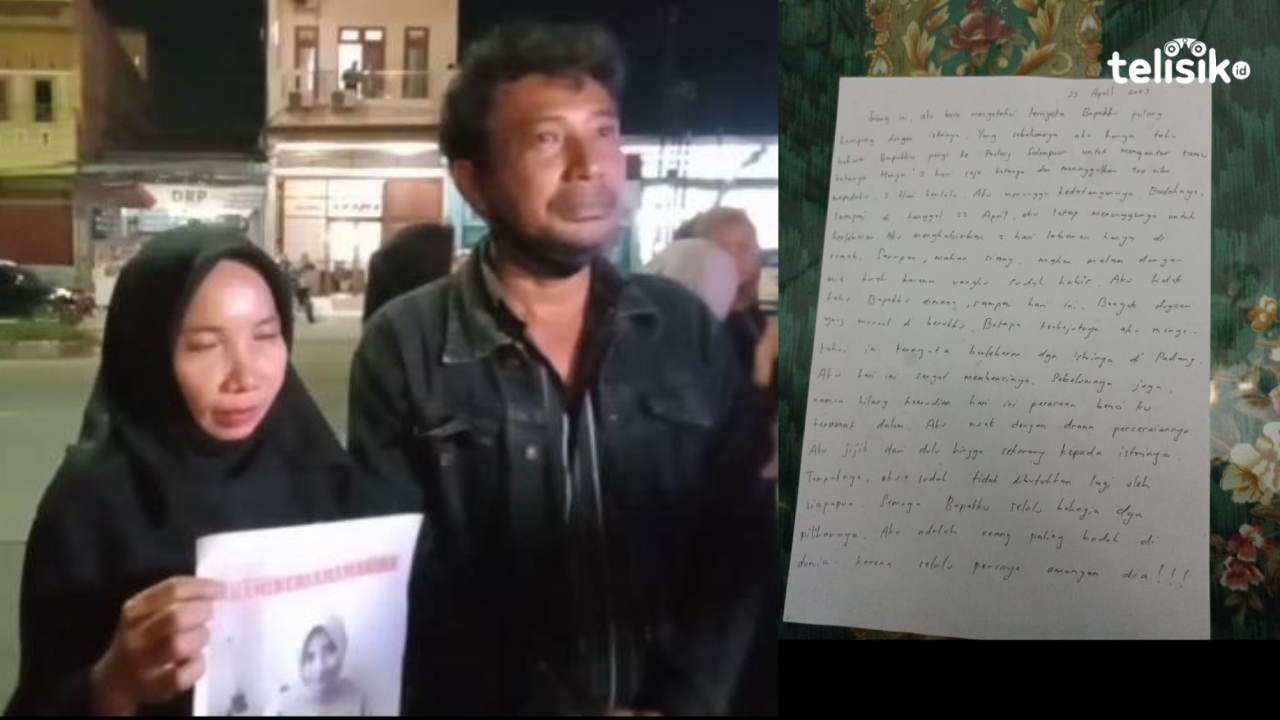 DRP
telisik.id
23 April 2023
Siang ini aku baru mengetahui ternyata Bapakku pulang
kampung dengan istrinya. Yang sebelumnya aku hanya tahu
bahwa Bapakku pergi ke Padang untuk mengantar tamu
katanya Hanya 3 hari saja katanya dan meninggalkan
kepadaku. 3 Hari berlalu. Aku menunggu kedatangannya. Bodohnya,
sampai di tanggal 22 April, aku tetap menunggunya untuk
berlebaran. Aku menghabiskan 2 hari lebaran hanya di
rumah. Sarapan, makan siang, makan malam dengan
mie karena uangku sudah habis. Aku tidak
tahu Bapakku dimana, sampai hari ini. Banyak dugaan
yang muncul di benakku. Betapa terkejutnya aku menge-
tahui ia ternyata berlebaran dgn istrinya di Padang.
Aku hari ini sangat membencinya. Sebelumnya juga,
namun hilang kemudian hari ini perasaan benci ku
teramat dalam. Aku muak dengan drama perceraiannya.
Aku jijik dari dulu hingga sekarang kepada istrinya.
Tampaknya, aku sudah tidak dibutuhkan lagi oleh
siapapun. Semoga Bapakku selalu bahagia dgn
pilihannya. Aku adalah orang paling bodoh di
dunia karena selalu percaya omongan dia!!!